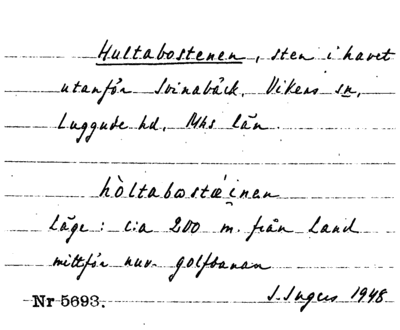 Hultabostenen, sten i havet
utanför Svinabäck, Vikens sn,
Luggude hd, Mhs län.
hòltabɷstæ̀i̯nen
Läge: c:a 200 m. från land
mittför nuv. golfbanan
Nr 5693. I. Ingers 1948